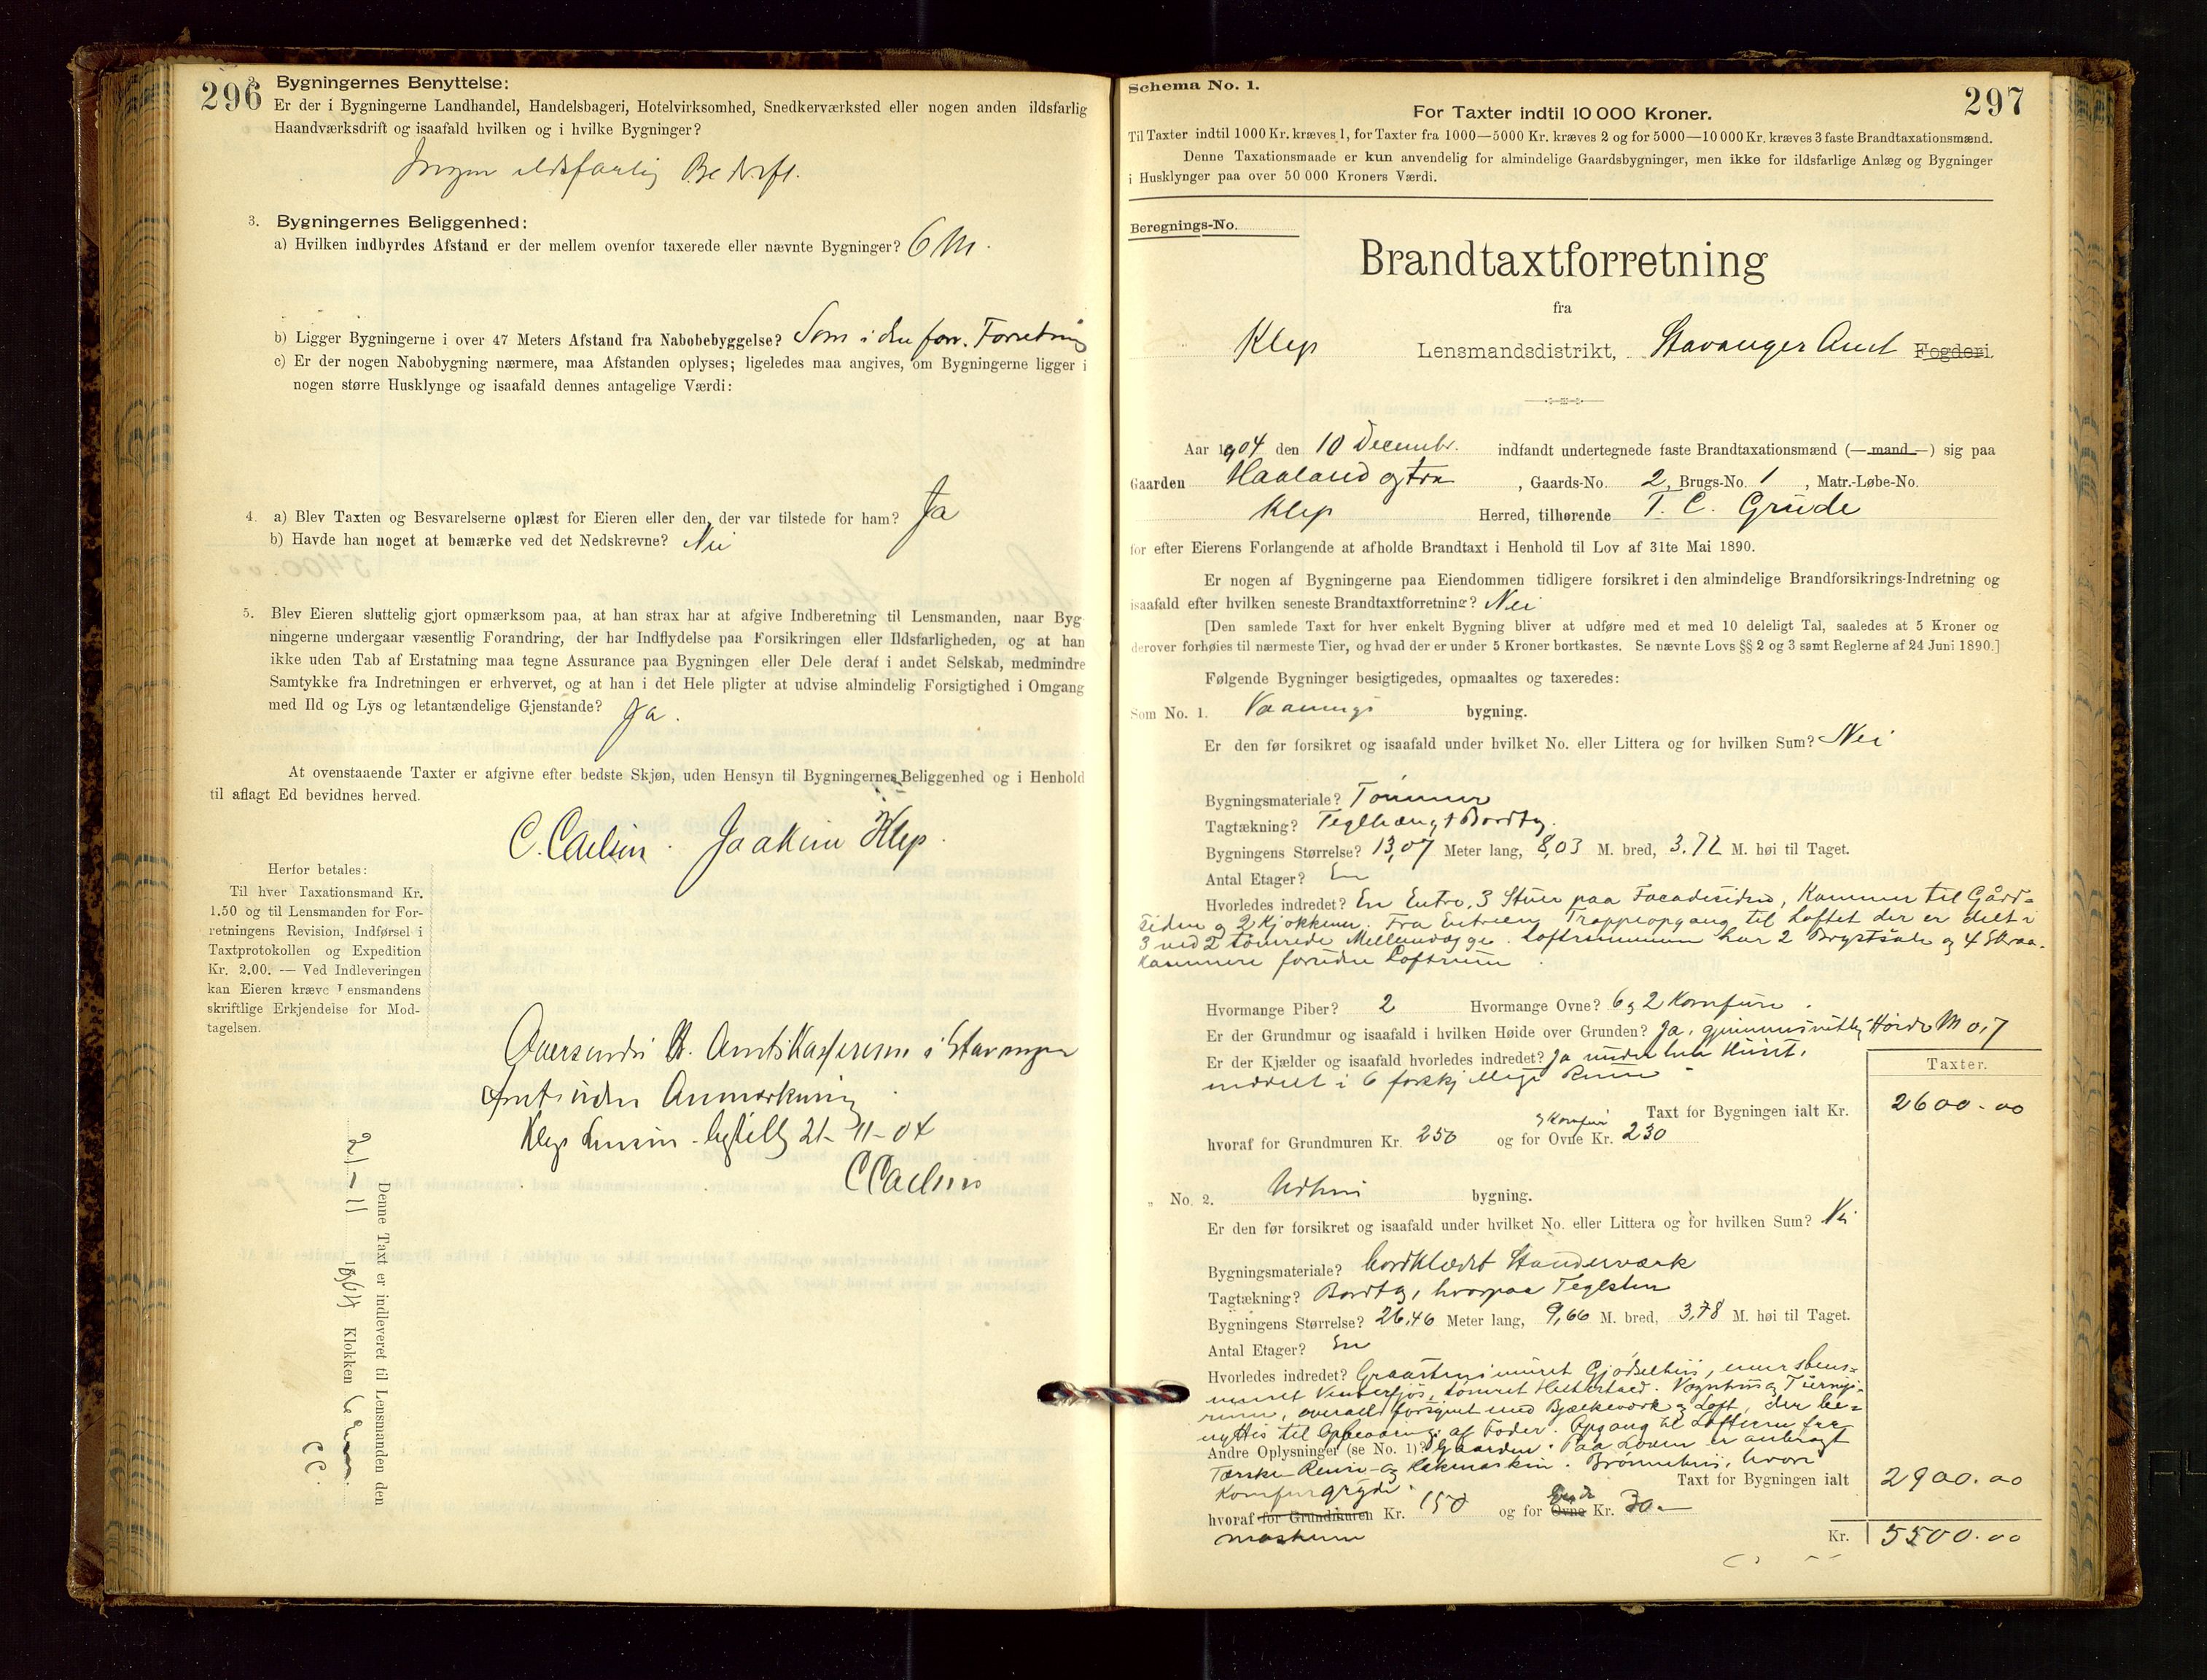 296
2. Bygningernes Benyttelse:
Er der i Bygningerne Landhandel, Handelsbageri, Hotelvirksomhed, Snedkerværksted eller nogen anden ildsfarlig
Haandværksdrift og isaafald hvilken og i hvilke Bygninger?
Ingen ildsfarlig Bedrift.
3. Bygningernes Beliggenhed:
a) Hvilken indbyrdes Afstand er der mellem ovenfor taxerede eller nævnte Bygninger? 6 M.
b) Ligger Bygningerne i over 47 Meters Afstand fra Nabobebyggelse? Som i den forr. Forretning
c) Er der nogen Nabobygning nærmere, maa Afstanden oplyses; ligeledes maa angives, om Bygningerne ligger i
nogen større Husklynge og isaafald dennes antagelige Værdi:
4. a) Blev Taxten og Besvarelserne oplæst for Eieren eller den, der var tilstede for ham? Ja
b) Havde han noget at bemærke ved det Nedskrevne? Nei
5. Blev Eieren sluttelig gjort opmærksom paa, at han strax har at afgive Indberetning til Lensmanden, naar Byg
ningerne undergaar væsentlig Forandring, der har Indflydelse paa Forsikringen eller Ildsfarligheden, og at han
ikke uden Tab af Erstatning maa tegne Assurance paa Bygningen eller Dele deraf i andet Selskab, medmindre
Samtykke fra Indretningen er erhvervet, og at han i det Hele pligter at udvise almindelig Forsigtighed i Omgang
med Ild og Lys og letantændelige Gjenstande? Ja.
At ovenstaaende Taxter er afgivne efter bedste Skjøn, uden Hensyn til Bygningernes Beliggenhed og i Henhold
til aflagt Ed bevidnes herved.
C. Caelsen. Joakim Klep.
Herfor betales:
Til hver Taxationsmand Kr.
1.50 og til Lensmanden for For-
retningens Revision, Indførsel i
Taxtprotokollen og Expedition
Kr. 2.00. — Ved Indleveringen
kan Eieren kræve Lensmandens
skriftlige Erkjendelse for Mod-
tagelsen.
Oversendes Hr. Amtskasserern i Stavanger
Amt uden Anmærkning
Klep 21-11-04
C Caelsen
Denne Taxt er indleveret til Lensmanden den
21-11 1904 Klokken 6
CC.
Schema No. 1.
297
For Taxter indtil 10 000 Kroner.
Til Taxter indtil 1000 Kr. kræves 1, for Taxter fra 1000—5000 Kr. kræves 2 og for 5000—10 000 Kr. kræves 3 faste Brandtaxationsmænd.
Denne Taxationsmaade er kun anvendelig for almindelige Gaardsbygninger, men ikke for ildsfarlige Anlæg og Bygninger
i Husklynger paa over 50 000 Kroners Værdi.
Beregnings-No.
Brandtaxtforretning
fra
Klep Lensmandsdistrikt, Stavanger Amt Fogderi.
Aar 1904 den 10 Decembr. indfandt undertegnede faste Brandtaxationsmænd (—mand—) sig paa
Gaarden Haaland østre, Gaards-No. 2, Brugs-No. 1, Matr.-Løbe-No.
Klep Herred, tilhørende T. C. Grude
for efter Eierens Forlangende at afholde Brandtaxt i Henhold til Lov af 31te Mai 1890.
Er nogen af Bygningerne paa Eiendommen tidligere forsikret i den almindelige Brandforsikrings-Indretning og
isaafald efter hvilken seneste Brandtaxtforretning? Nei
[Den samlede Taxt for hver enkelt Bygning bliver at udføre med et med 10 deleligt Tal, saaledes at 5 Kroner og
derover forhøies til nærmeste Tier, og hvad der er under 5 Kroner bortkastes. Se nævnte Lovs §§ 2 og 3 samt Reglerne af 24 Juni 1890.]
Følgende Bygninger besigtigedes, opmaaltes og taxeredes:
Som No. 1. Vaanings bygning.
Er den før forsikret og isaafald under hvilket No. eller Littera og for hvilken Sum? Nei
Bygningsmateriale? Tømmer
Tagtækning? Teglhængt Bordtag.
Bygningens Størrelse? 13,07 Meter lang, 8,03 M. bred, 3.72 M. høi til Taget.
Antal Etager? En
Hvorledes indredet? En Entre, 3 Stuer paa Facadesiden, Kammer til Gård-
siden og 2 Kjøkkener. Fra Entreen Trappeopgang til Loftet der er delt i
3 ved 2 tømrede Mellemvægge. Loftrummene har 2 Brystsale og 4 Skraa-
kammere foruden Loftrum.
Hvormange Piber? 2 Hvormange Ovne? 6 og 2 Komfure.
Er der Grundmur og isaafald i hvilken Høide over Grunden? Ja, gjennemsnitlig Høide M 0,7
Er der Kjælder og isaafald hvorledes indredet? Ja under hele Huset,
inddelt i 6 forskjellige Rum
Taxter.
Taxt for Bygningen ialt Kr. 2600.00
hvoraf for Grundmuren Kr. 250 og for Ovne og Komfur Kr. 230
" No. 2. Udhus bygning.
Er den før forsikret og isaafald under hvilket No. eller Littera og for hvilken Sum? Nei
Bygningsmateriale? bordklædt Standerværk
Tagtækning? Bordtag, hvorpaa Teglsten
Bygningens Størrelse? 26,46 Meter lang, 9,66 M. bred, 3,78 M. høi til Taget.
Antal Etager? En
Hvorledes indredet? Graastensmuret Gjødselhus,
muret tømret Hestestald. Vognhus og
rum, overalt forsynet med Bjælkeværk og Loft, der be-
nyttes til Opbevaring af Foder. Opgang til Lofterne fra
Andre Oplysninger (se No. 1)? Gaarden. Paa Loven er anbragt
Tærske- Rense- og Hakmaskin. Brønnehus, hvori
Komfurgryde.
Taxt for Bygningen ialt 2900.00
hvoraf for Grundmuren Kr. 150 og for Ovne Kr. 30.-
maskum
Kr. 5500.00